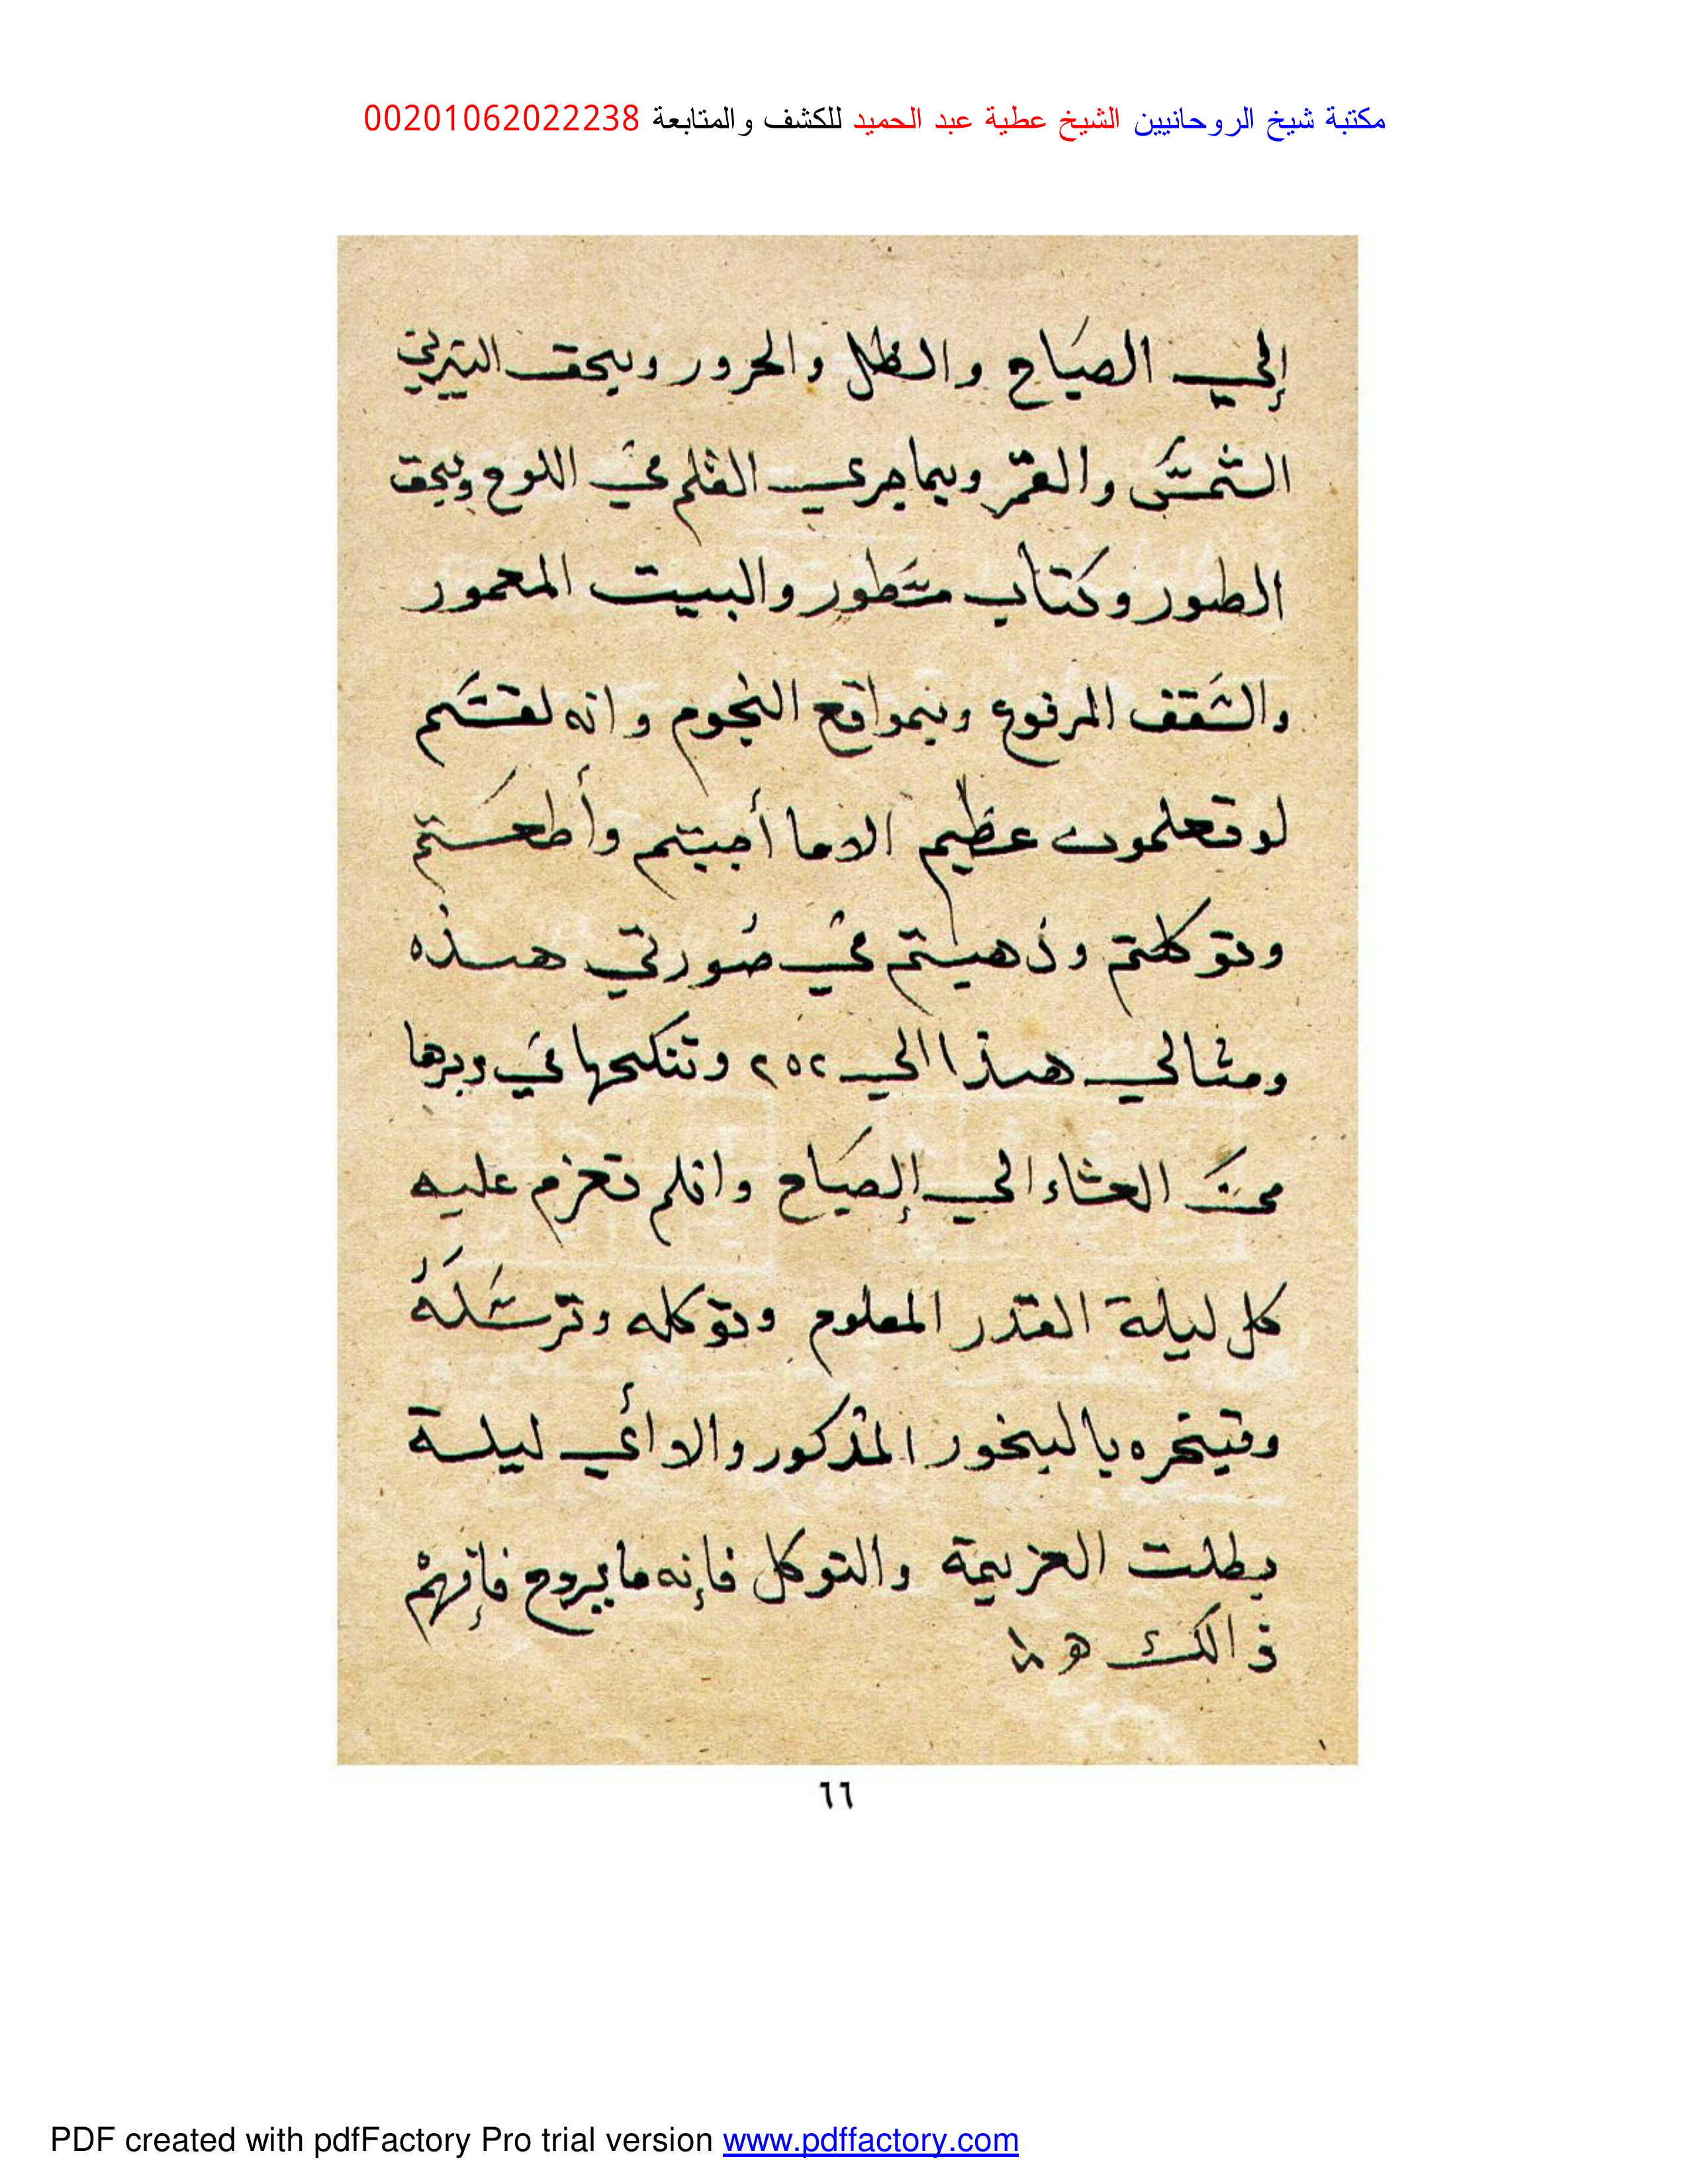 مكتبة شيخ الروحانيين الشيخ عطية عبد الحميد للكشف والمتابعة 00201062022238
إلي الصباح والظل والحرور وبحق النيرين
الشمس والقمر وبما جري القلم في اللوح وبحق
الطور وكتاب مسطور والبيت المعمور
والسقف المرفوع وبمواقع النجوم وانه لقسم
لو تعلمون عظيم الا ما أجبتم وأطعتم
وتوكلتم وذهبتم في صورتي هذه
ومثالي هذا الي ٢٥٢ وتنكحها في دبرها
من العشاء الي الصباح وانلم تعزم عليه
كل ليلة القدر المعلوم وتوكله وترسله
وتبخره بالبخور المذكور والا أي ليلة
بطلت العزيمة والتوكل فإنه ما يروح فإفهم
ذالك
٦٦
PDF created with pdfFactory Pro trial version www.pdffactory.com